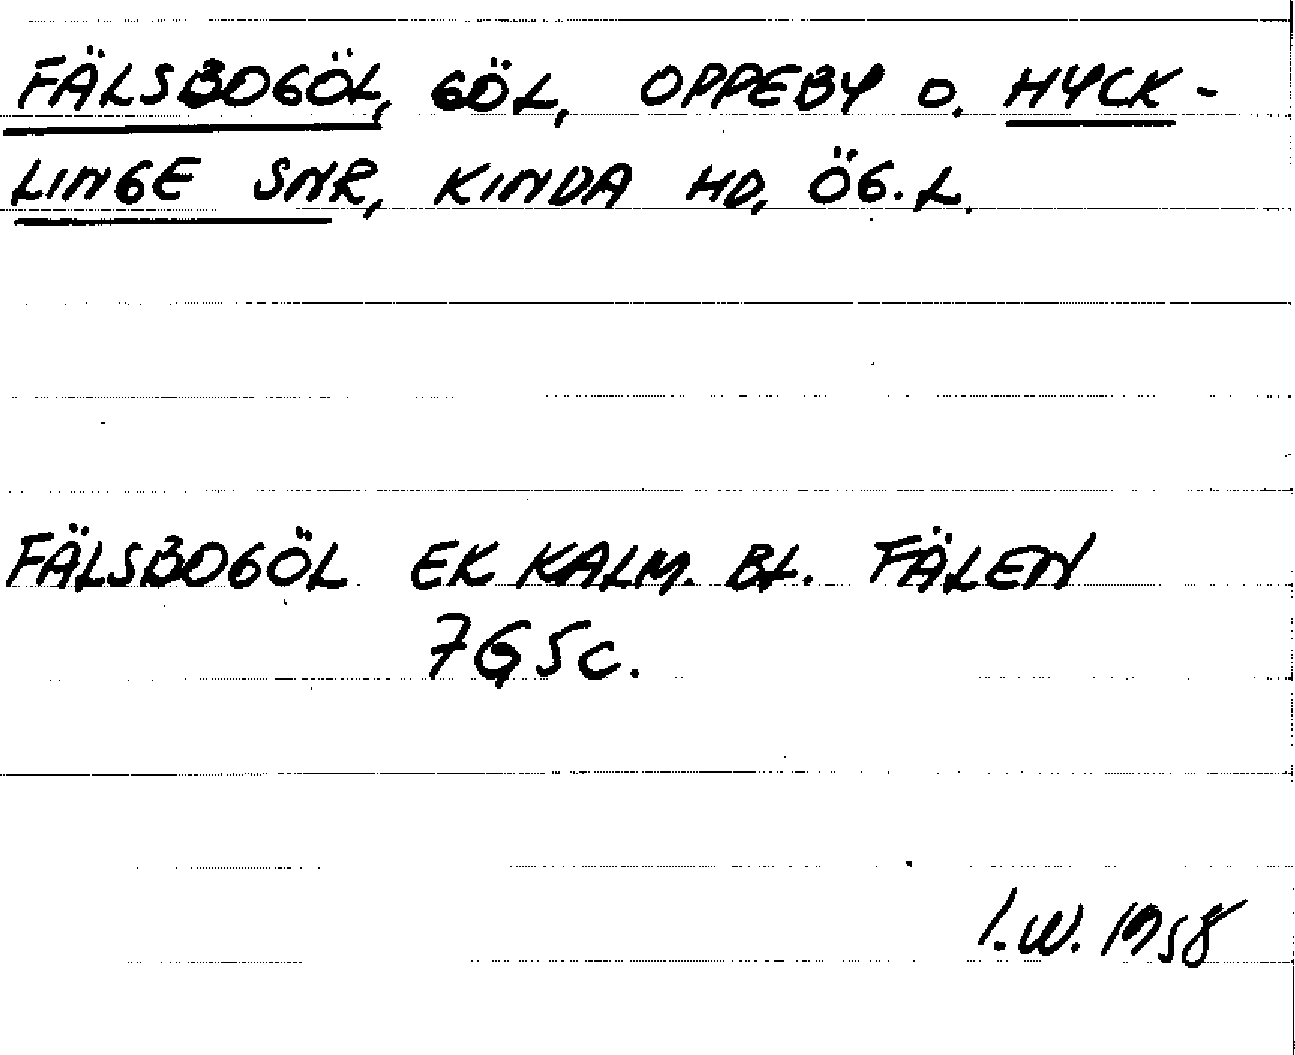 FÄLSBOGÖL, GÖL, OPPEBY O. HYCK-
LINGE SNR, KINDA HD, ÖG.L.
FÄLSBOGÖL EK KALM. BL. FÄLEN
7G5c.
I.W. 1958